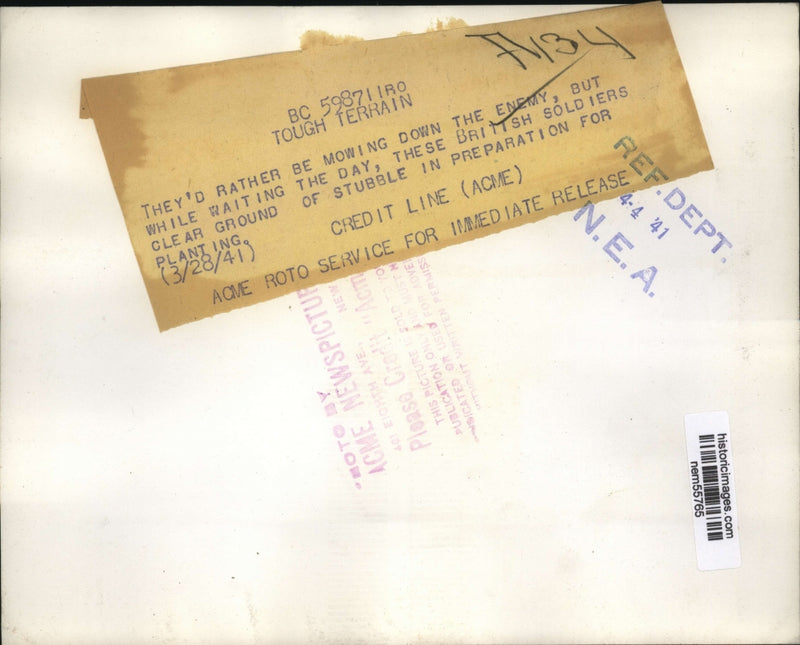 A134
BC 598711RO
TOUGH TERRAIN
THEY'D RATHER BE MOWING DOWN THE ENEMY, BUT
WHILE WAITING THE DAY, THESE BRITISH SOLDIERS
CLEAR GROUND OF STUBBLE IN PREPARATION FOR
PLANTING.
(3/28/41)
CREDIT LINE (ACME)
ACME ROTO SERVICE FOR IMMEDIATE RELEASE
REF. DEPT.
4-4 '41
N.E.A.
HOTO BY
ACME NEWSPICTUR
461 EIGHTH AVE., NEW
Please Credit "Acm
THIS PICTURE IS SOLD TO YO
PUBLICATION ONLY AND MUST N
OR USED FOR ADVE
WRITTEN PERMISS
historicimages.com
nem55765